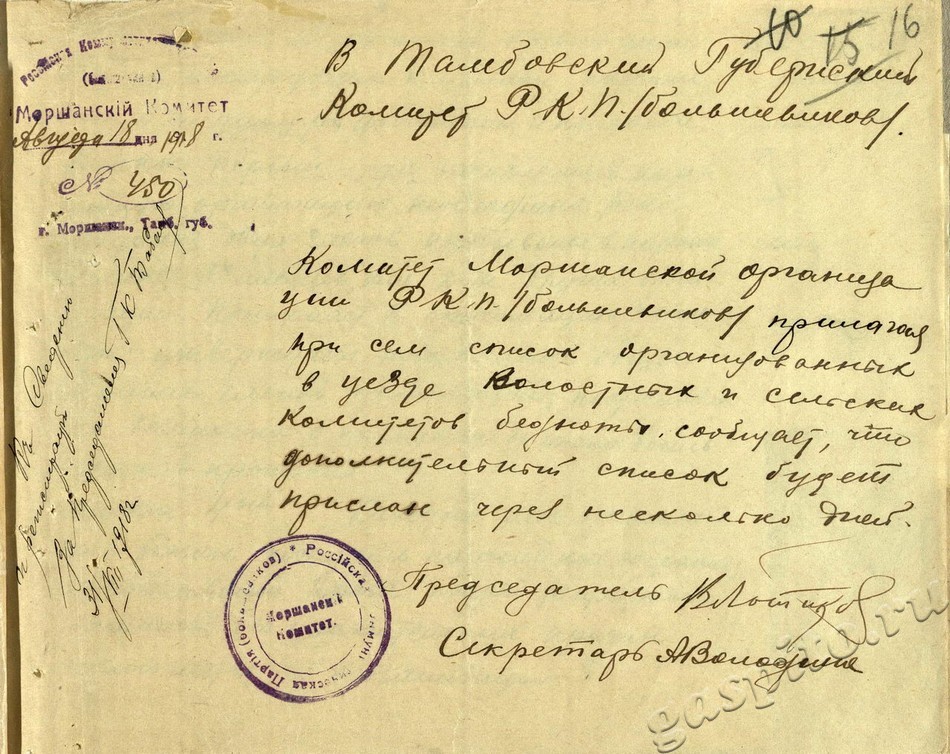 10 15 16
Российская
Моршанскій Комитет
Августа 18 дня 1918 г.
№ 450
г. Моршанск, Тамб. губ.
В Тамбовский Губернский
Комитет Р.К.П. /большевиков/.
Комитет Моршанской организа
ции Р.К.П. /большевиков/ прилагая
при сем список организованных
в уезде Волостных и сельских
Комитетов бедноты, сообщает, что
дополнительный список будет
прислан через несколько дней.
Председатель
Секретарь АВолодина
К сведению
и регистрации
За Председателя ГК
31/VIII 1918 г.
Россійская Коммунистическая Партія (большевиков) *
Моршанскій
Комитет.
gaspito.ru